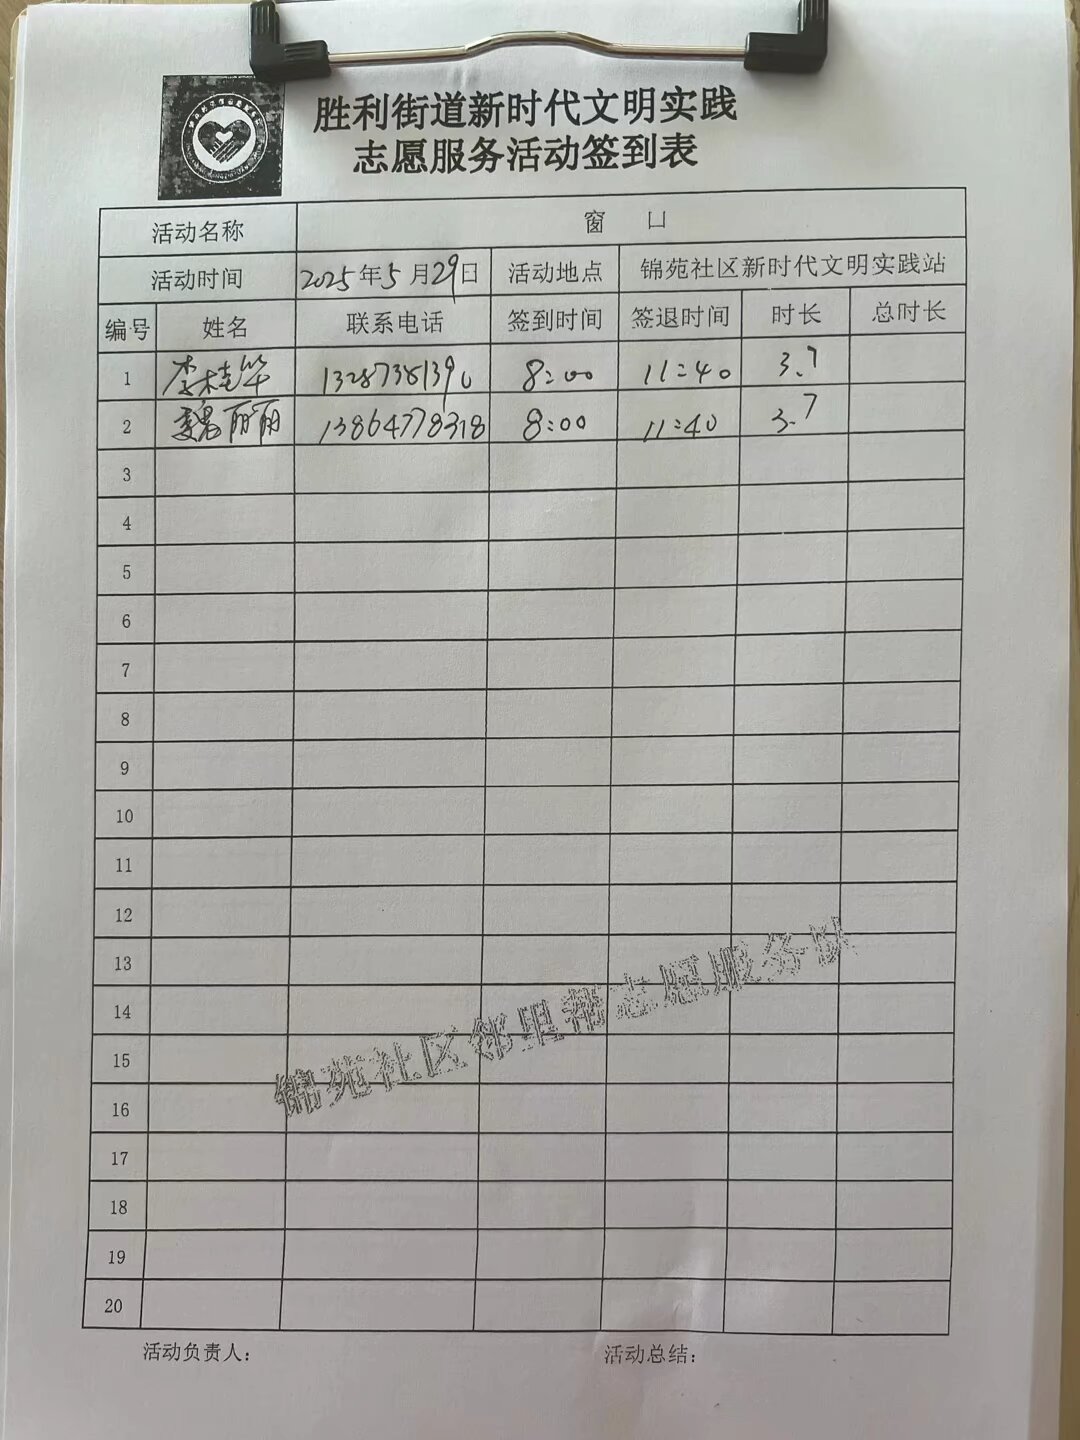 胜利街道新时代文明实践
志愿服务活动签到表
活动名称 窗 口
活动时间 2025年5月29日 活动地点 锦苑社区新时代文明实践站
编号 姓名 联系电话 签到时间 签退时间 时长 总时长
1 李桂华 13287381390 8:00 11:40 3.7
2 魏丽丽 13864778318 8:00 11:40 3.7
3
4
5
6
7
8
9
10
11
12
13
14
15
16
17
18
19
20
锦苑社区邻里帮志愿服务队
活动负责人： 活动总结：